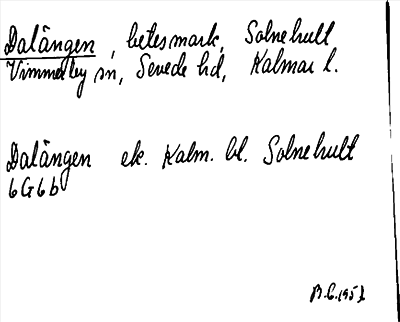 Dalängen, betesmark, Solnehult
Vimmerby sn, Sevede hd, Kalmar l.
Dalängen ek. Kalm. bl. Solnehult
6G6b